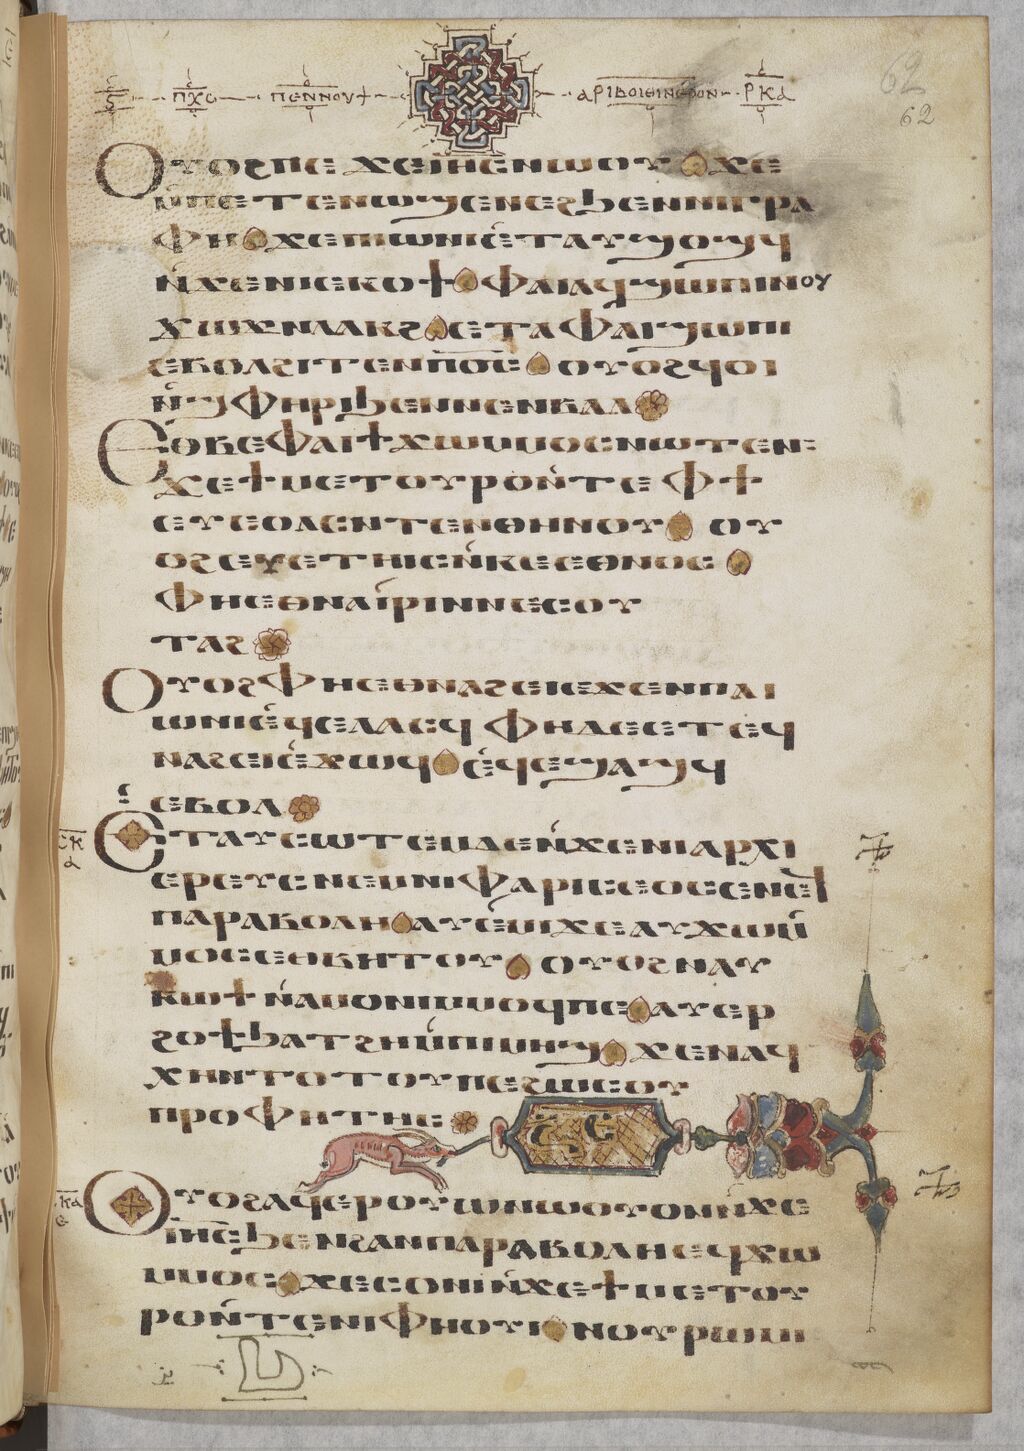 ⲡⲭⲥ ⲡⲉⲛⲛⲟⲩϯ ⲁⲣⲓⲃⲟⲓⲑⲓⲛⲉⲣⲟⲛ ⲣⲕⲁ
62
62
ⲟⲩⲟϩⲡⲉ ϫⲉⲓⲏⲥⲛⲱⲟⲩ ϫⲉ
ⲙⲡⲉⲧⲉⲛⲱϣⲉⲛⲉϩϧⲉⲛⲛⲓⲅⲣⲁ
ⲫⲏ ϫⲉⲡⲓⲱⲛⲓⲉ̀ⲧⲁⲩϣⲟϣϥ
ⲛ̀ϫⲉⲛⲓⲉⲕⲟϯ ⲫⲁⲓⲁϥϣⲱⲡⲓⲛⲟⲩ
ϫⲱϫⲛⲗⲁⲕϩ ⲉⲧⲁⲫⲁⲓϣⲱⲡⲓ
ⲉⲃⲟⲗϩⲓⲧⲉⲛⲡϭⲥ ⲟⲩⲟϩϥⲟⲓ
ⲛ̀ϣⲫⲏⲣⲓϧⲉⲛⲛⲉⲛⲃⲁⲗ
ⲉⲑⲃⲉⲫⲁⲓϯϫⲱⲙⲙⲟⲥⲛⲱⲧⲉⲛ:
ϫⲉϯⲙⲉⲧⲟⲩⲣⲟⲛ̀ⲧⲉ ⲫϯ
ⲉⲩⲉⲟⲗⲥⲛⲧⲉⲛⲑⲏⲛⲟⲩ ⲟⲩ
ⲟϩⲉⲩⲉⲧⲏⲓⲥⲛ̀ⲕⲉⲉⲑⲛⲟⲥ
ⲫⲏⲉⲑⲛⲁⲓ̀ⲣⲓⲛⲛⲉⲥⲟⲩ
ⲧⲁϩ
ⲟⲩⲟϩⲫⲏⲉⲑⲛⲁϩⲉⲓⲉϫⲉⲛⲡⲁⲓ
ⲱⲛⲓⲉ̀ϥⲉⲗⲁⲥϥ ⲫⲏⲇⲉⲉⲧⲉϥ
ⲛⲁϩⲉⲓⲉ̀ϫⲱϥ ⲉ̀ϥⲉϣⲁϣϥ
ⲉⲃⲟⲗ
ⲉⲧⲁⲩⲥⲱⲧⲉⲙⲇⲉⲛ̀ϫⲉⲛⲓⲁⲣⲭⲓ
ⲉⲣⲉⲩⲥ ⲛⲉⲙⲛⲓⲫⲁⲣⲓⲥⲉⲟⲥ ⲉⲛⲉϥ
ⲡⲁⲣⲁⲃⲟⲗⲏ ⲁⲩⲉ̀ⲙⲓϫⲉⲁⲩϫⲱⲙ̀
ⲙⲟⲥⲉⲑⲃⲏⲧⲟⲩ ⲟⲩⲟϩⲛⲁⲩ
ⲕⲱϯ ⲛ̀ⲁⲙⲟⲛⲓⲙⲙⲟϥⲡⲉ ⲁⲩⲉⲣ
ϩⲟϯϧⲁⲧϩⲏⲙ̀ⲡⲓⲙⲏϣ ϫⲉⲛⲁϥ
ⲭⲏⲛⲧⲟⲧⲟⲩⲡⲉϩⲱⲥⲟⲩ
ⲡⲣⲟⲫⲏⲧⲏⲥ
ⲟⲩⲟϩⲁϥⲉⲣⲟⲩⲱⲛⲱⲟⲩⲟⲛⲛ̀ϫⲉ
ⲓⲏⲥϧⲉⲛϩⲁⲛⲡⲁⲣⲁⲃⲟⲗⲏ ⲉϥϫⲱ
ⲙⲙⲟⲥ ϫⲉⲥⲟⲛⲓⲛ̀ϫⲉϯⲙⲉⲧⲟⲩ
ⲣⲟⲛ̀ⲧⲉⲛⲓⲫⲏⲟⲩⲓ ⲛⲟⲩⲣⲱⲙⲓ